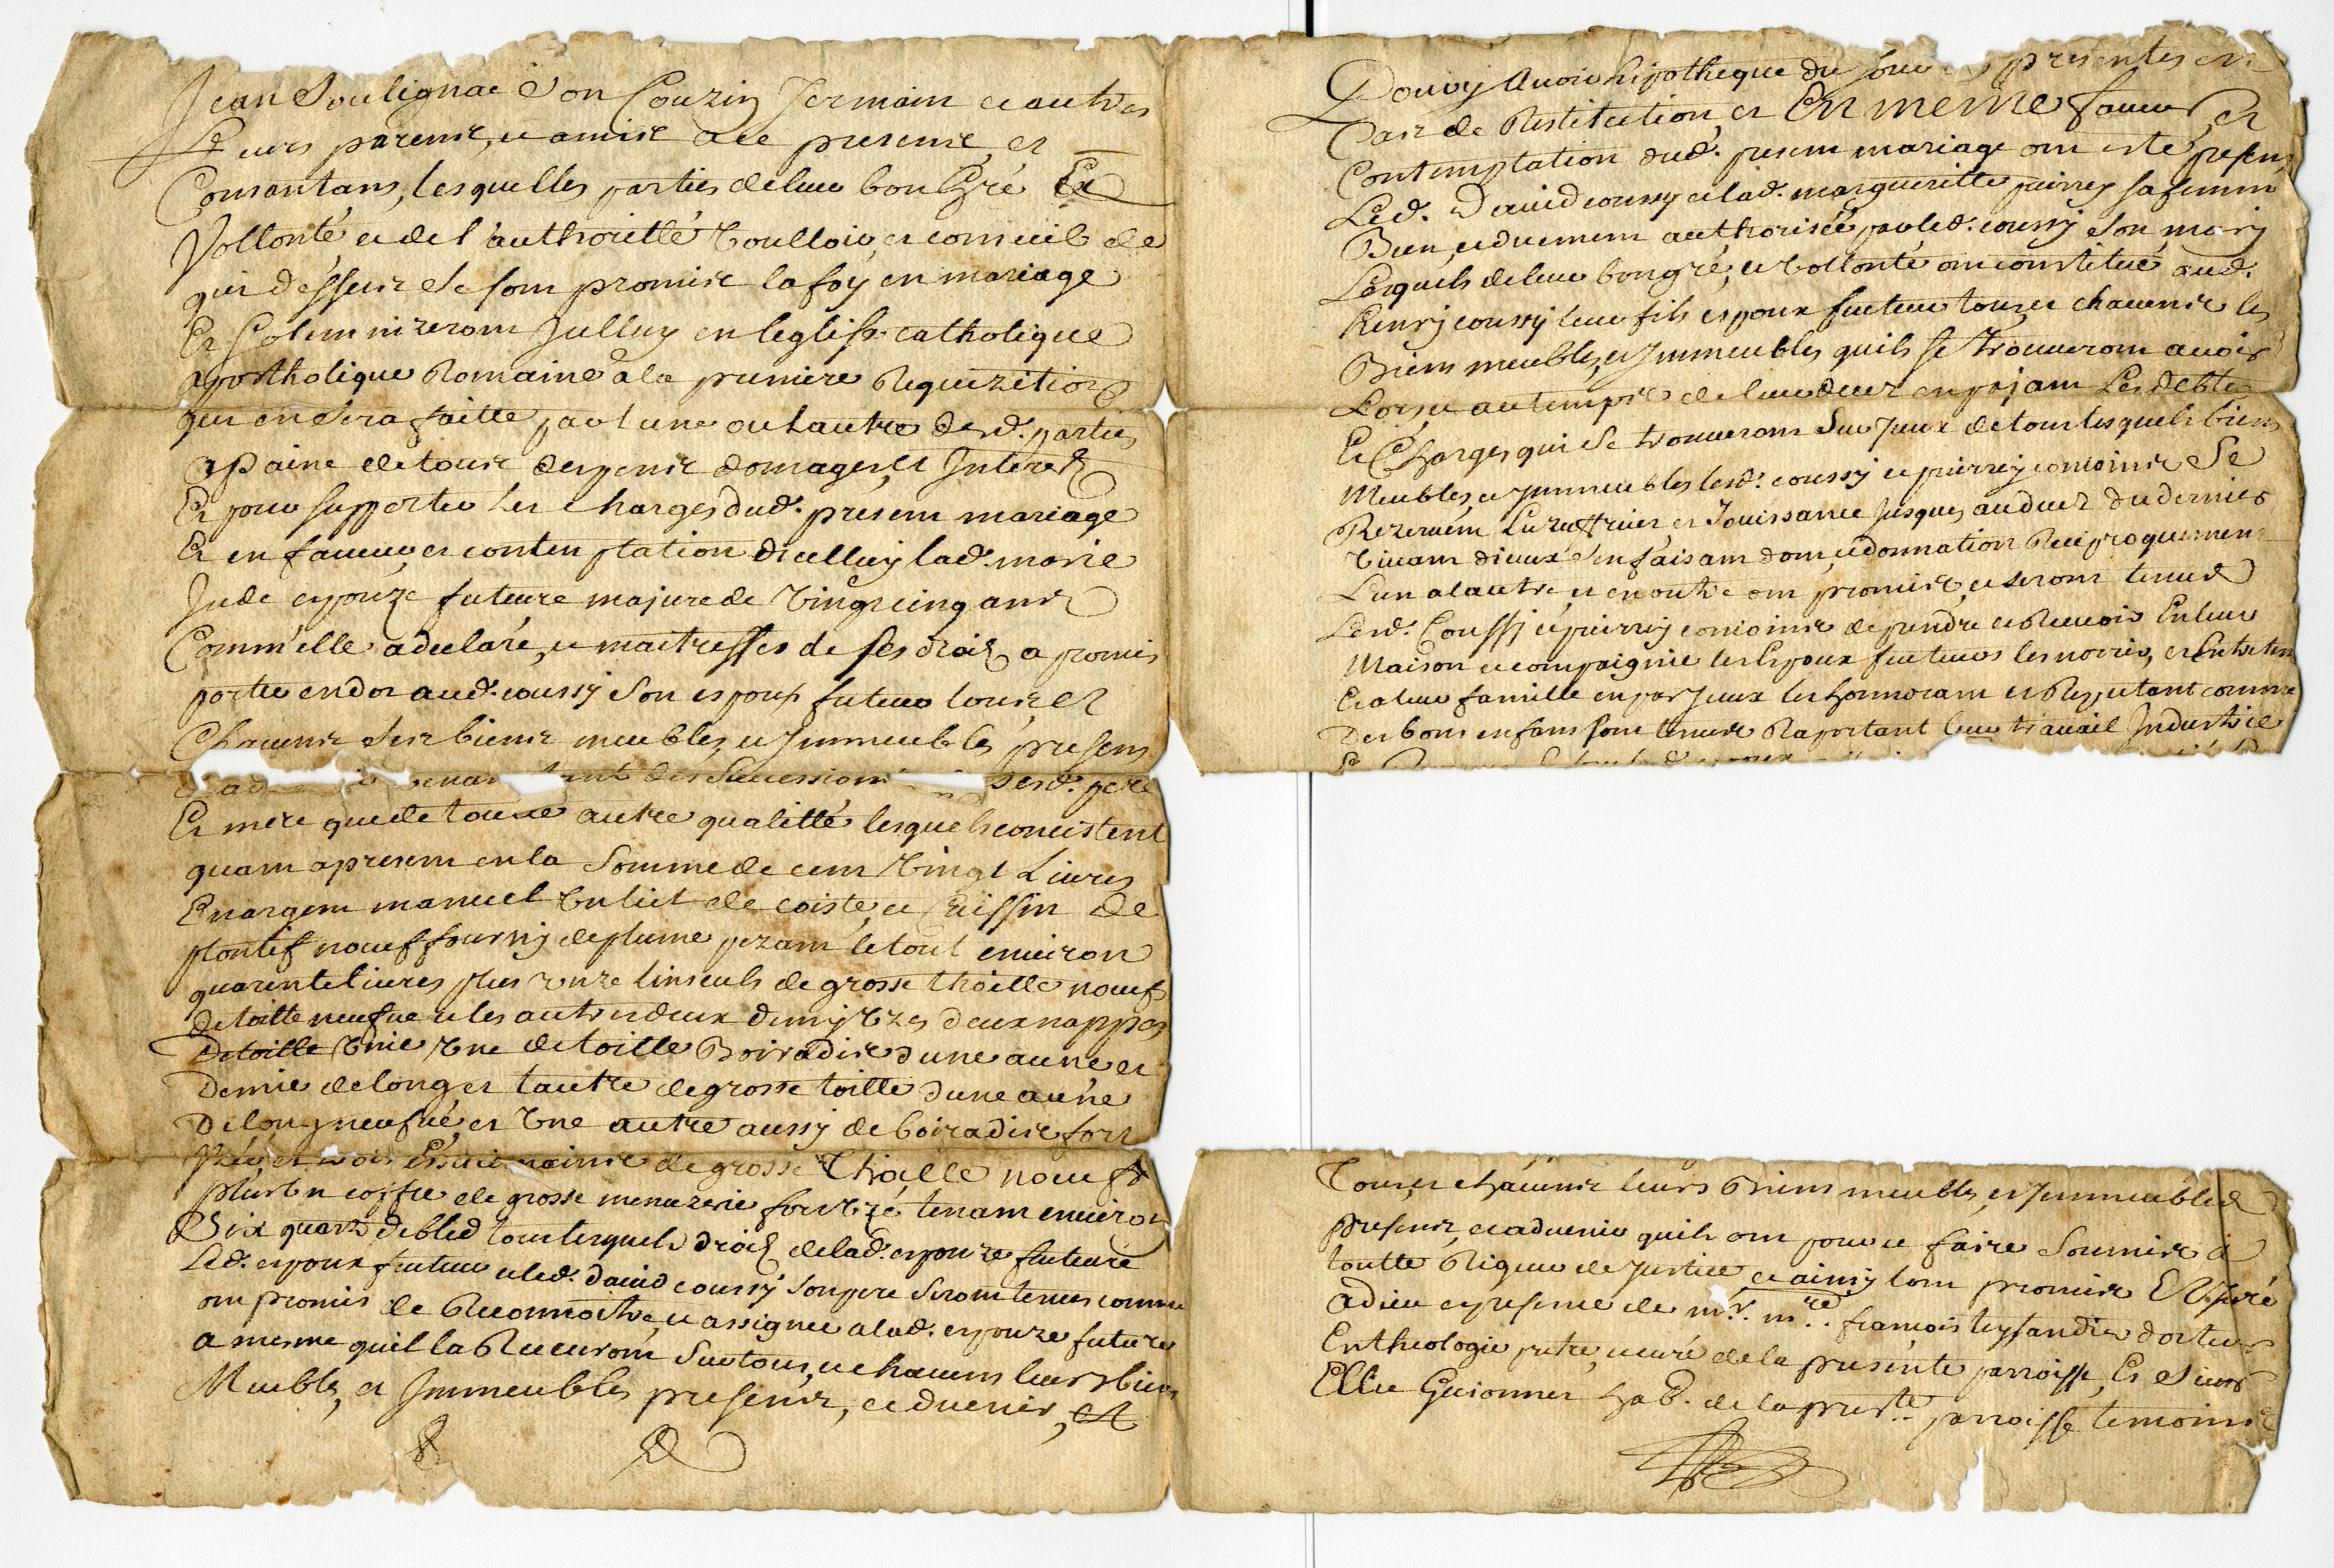 Jean Soulignac son Couzin Jermain et autres
Leurs parens, et amis a ce presens et
Consantans, lesquelles parties de leur bon Gré Et
Vollonté et de l'authoritté Voulloir, et conseil de
qui dessus se sont promis la foy en mariage
Et Solemnizeront Jelluy en leglisse catholique
apostholique Romaine a la premiere Requizition
qui en sera faitte par lune ou lautre desd. parties
a paine de tous despens domages, et Interets
Et pour supporter les charges dud. present mariage
Et en faveur, et contemptation dicelluy lad. marie
Jude espouze future majure de Vingt cinq ans
Comm'elle a declaré, et maitresses de ses droits a promis
porter en dot aud. coussy son espoux futeur tous et
Chacuns ses biens meubles, et Immeubles presens
des successions desd. pere
Et mere que de toutte autre qualitté lesquels concistent
quant a present en la somme de cent Vingt Livres
En argent manuel Un lict de coiste, et Cuissin de
plontif nœuf fourny de plume pezant le tout environ
quarente livres plus onze linseuls de grosse thoille nœuf
de toille neufve et les autres deux demy Uzés deux nappes
de toille Unie Une de toille Boiradis d'une aune et
Demie de long, et lautre de grosse toille d'une aune
De long neufve, et Une autre aussy de boiradis fort
Uzée, et trois Essuimains de grosse Thoille nœufs
plus Un coffre de grosse menuzerie fort Uzé tenant environ
Six quarts de bled tous lesquels droits de lad. espouze future
Led. espoux futeur et led. david coussy son pere seront tenus comme
ont promis de Reconnoitre, et assigner a lad. espouze future
a mesme quil la Recevront sur tous, et chacuns leurs biens
Meubles, et Immeubles presens, et advenir, et
Pour y Avoir hipotheque du jour presentes en
Cas de Restitution, et En meme faveur, et
Contemptation dud. present mariage ont esté presens
Led. David coussy et lad. margueritte peirrey sa femme
Bien, et duement authorisée par led. coussy son mary
Lesquels de leur bon gré, et Vollonté ont constitué aud.
henry coussy leur fils espoux futeur tous, et chacuns les
Biens meubles, et Immeubles quils se trouveront avoir
Lors, et au temps de leur decez en payant Les debtes
Et Charges qui se trouveront sur Jeux de tous lesquels biens
Meubles, et Immeubles lesd. coussy et peirrey conjoints se
Rezervent Luzuffruict et Jouissance Jusques au decez du dernier
Vivant d'ieux s'en faisant don, et donnation Reciproquement
L'un a lautre, et en outre ont promis, et seront tenus
Lesd. Coussy et peirrey conjoints de prendre et Recevoir En leur
Maison et compaignie les Espoux futeurs les norrir, et Entretenir
Et a leur famille en par Jeux les honnorant et Respectant comme
Des bons enfans sont tenus Raportant leur travail Industrie
Tous, et chacuns leurs Biens meubles, et Immeubles
presens, et advenir quils ont pour ce faire soumis a
toutte Rigueur de Justice, et ainsy lont promis Et Juré
a dieu en presence de mr. mre. françois teyssandier docteur
En theologie prtre, et curé de la presente parroisse, Et Sieur
Elie Guionnet hab. de la prente parroisse temoins